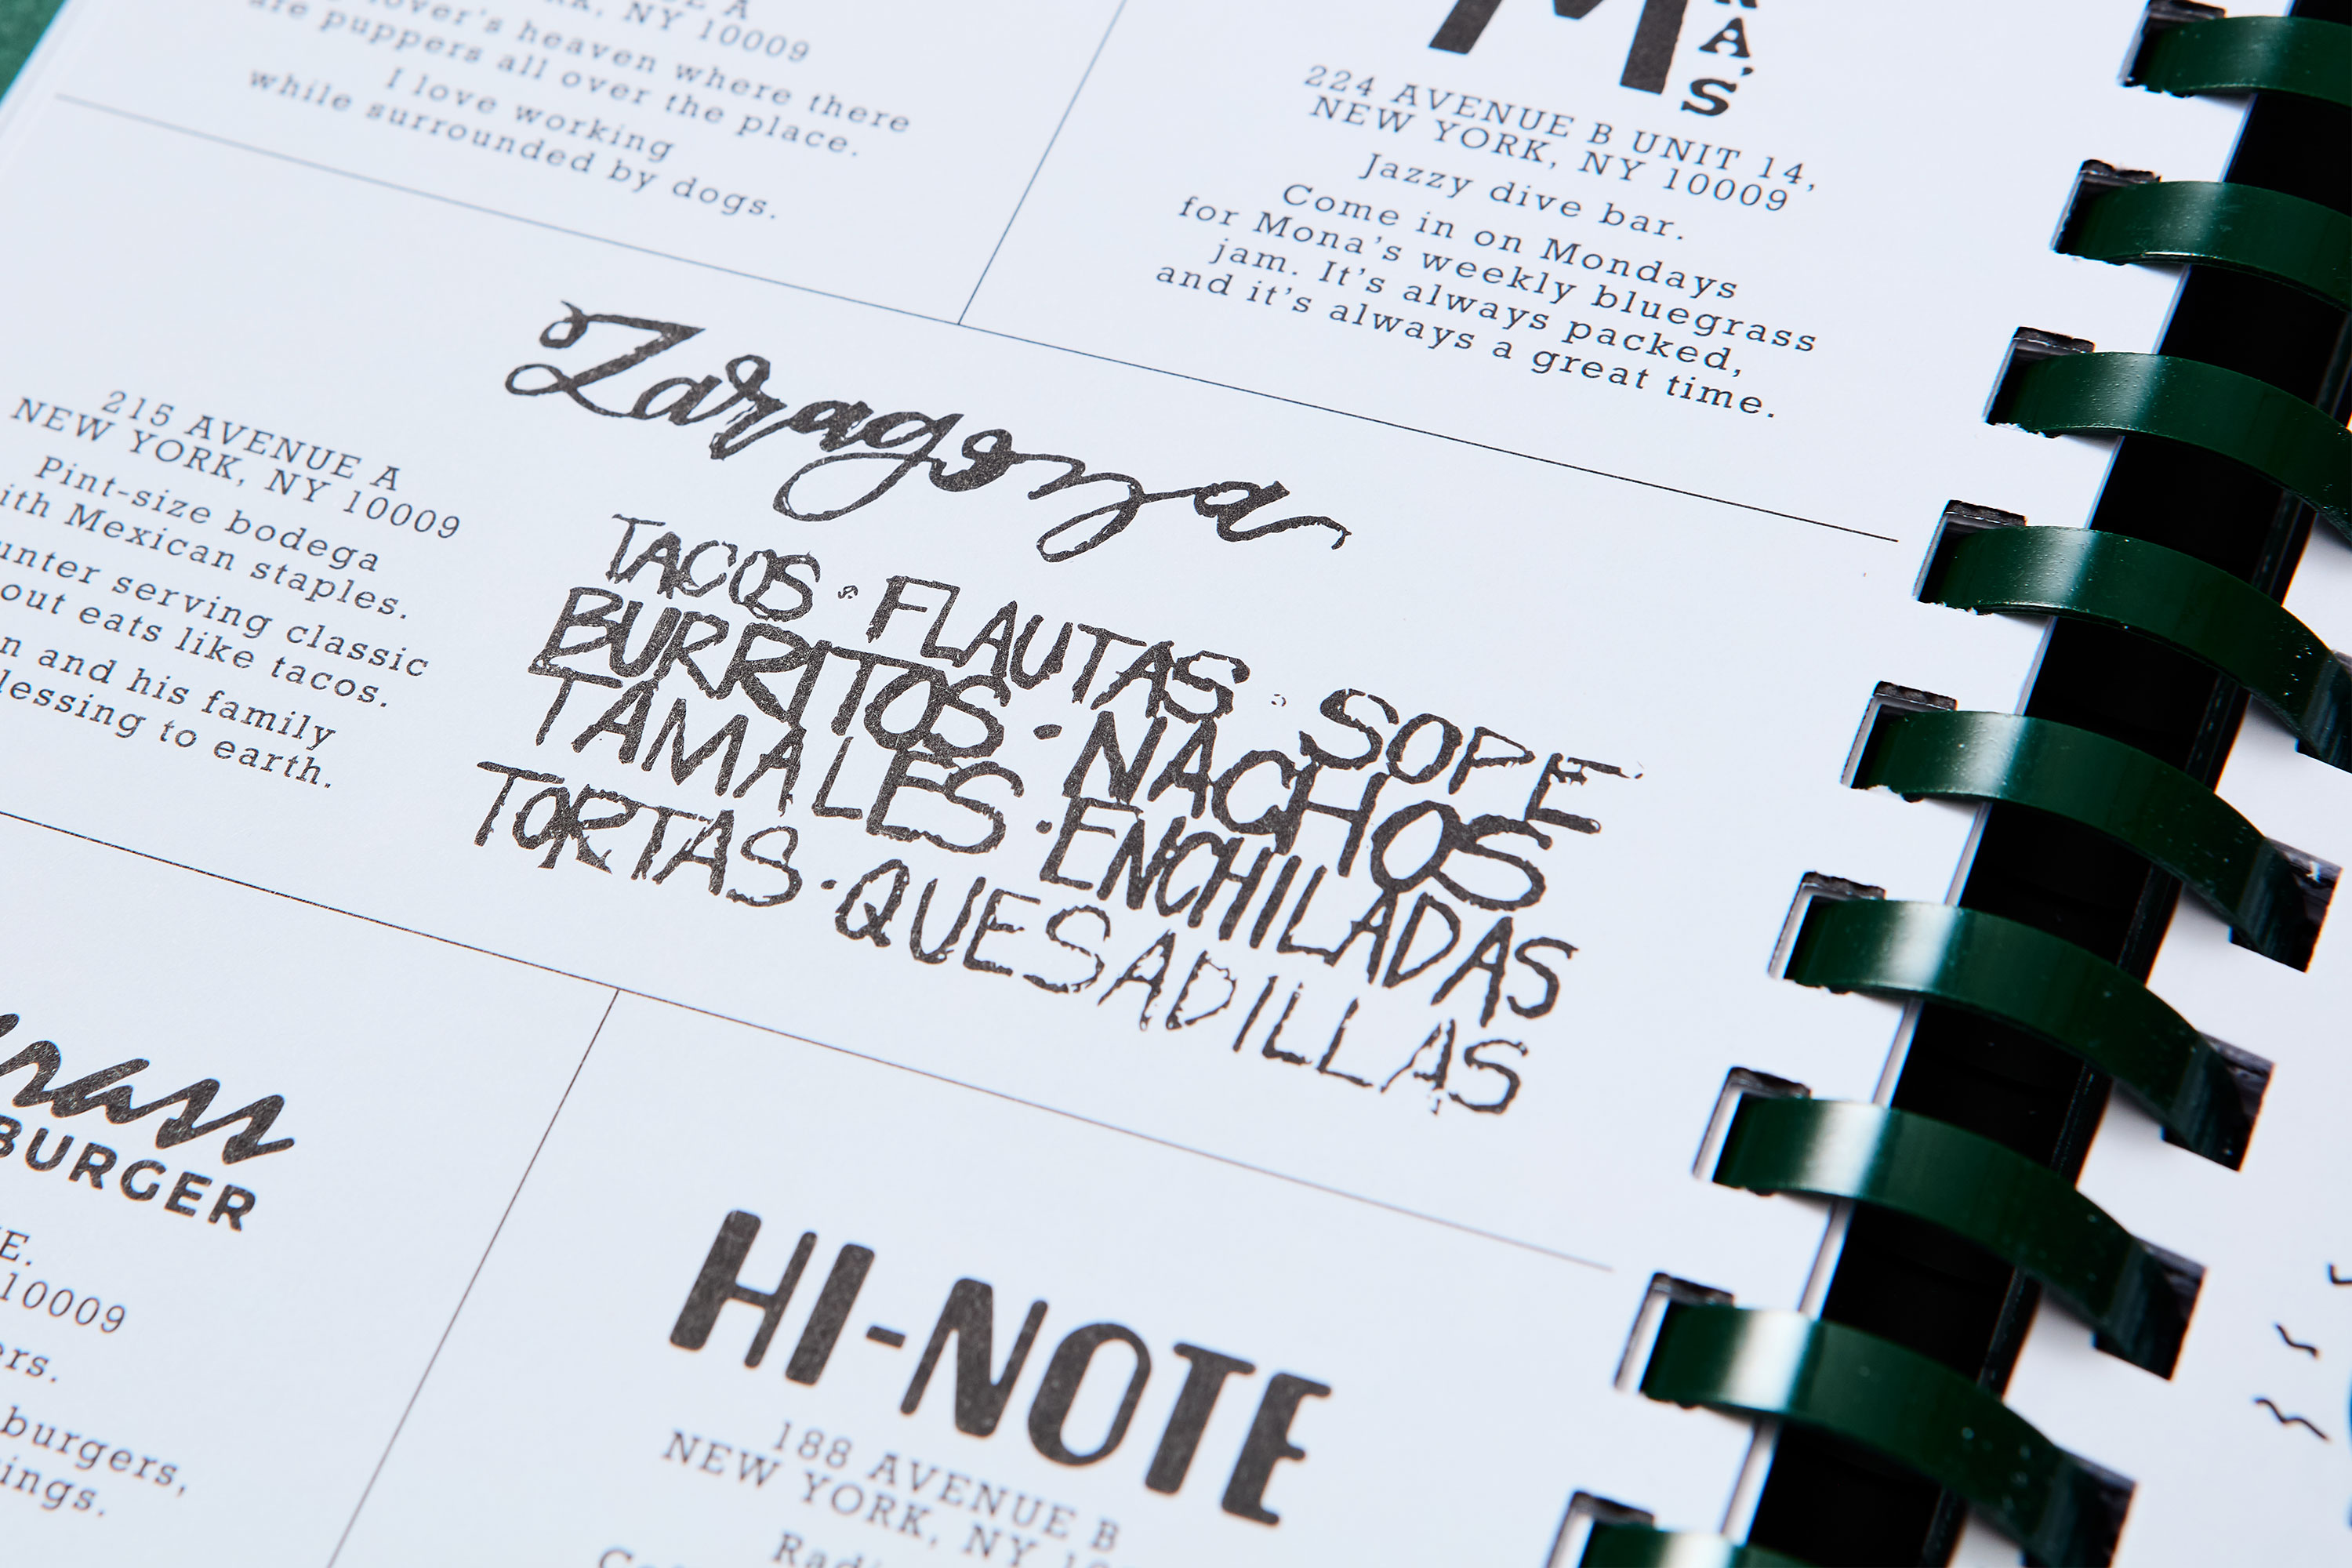 A
, NY 10009
lover's heaven where there
are puppers all over the place.
I love working
while surrounded by dogs.
M
A'S
224 AVENUE B UNIT 14,
NEW YORK, NY 10009
Jazzy dive bar.
Come in on Mondays
for Mona's weekly bluegrass
jam. It's always packed,
and it's always a great time.
215 AVENUE A
NEW YORK, NY 10009
Pint-size bodega
ith Mexican staples.
unter serving classic
out eats like tacos.
n and his family
lessing to earth.
Zaragoza
TACOS · FLAUTAS · SOPE
BURRITOS · NACHOS
TAMALES · ENCHILADAS
TORTAS · QUESADILLAS
rass
BURGER
E.
10009
ers.
burgers,
ings.
HI-NOTE
188 AVENUE B
NEW YORK, NY